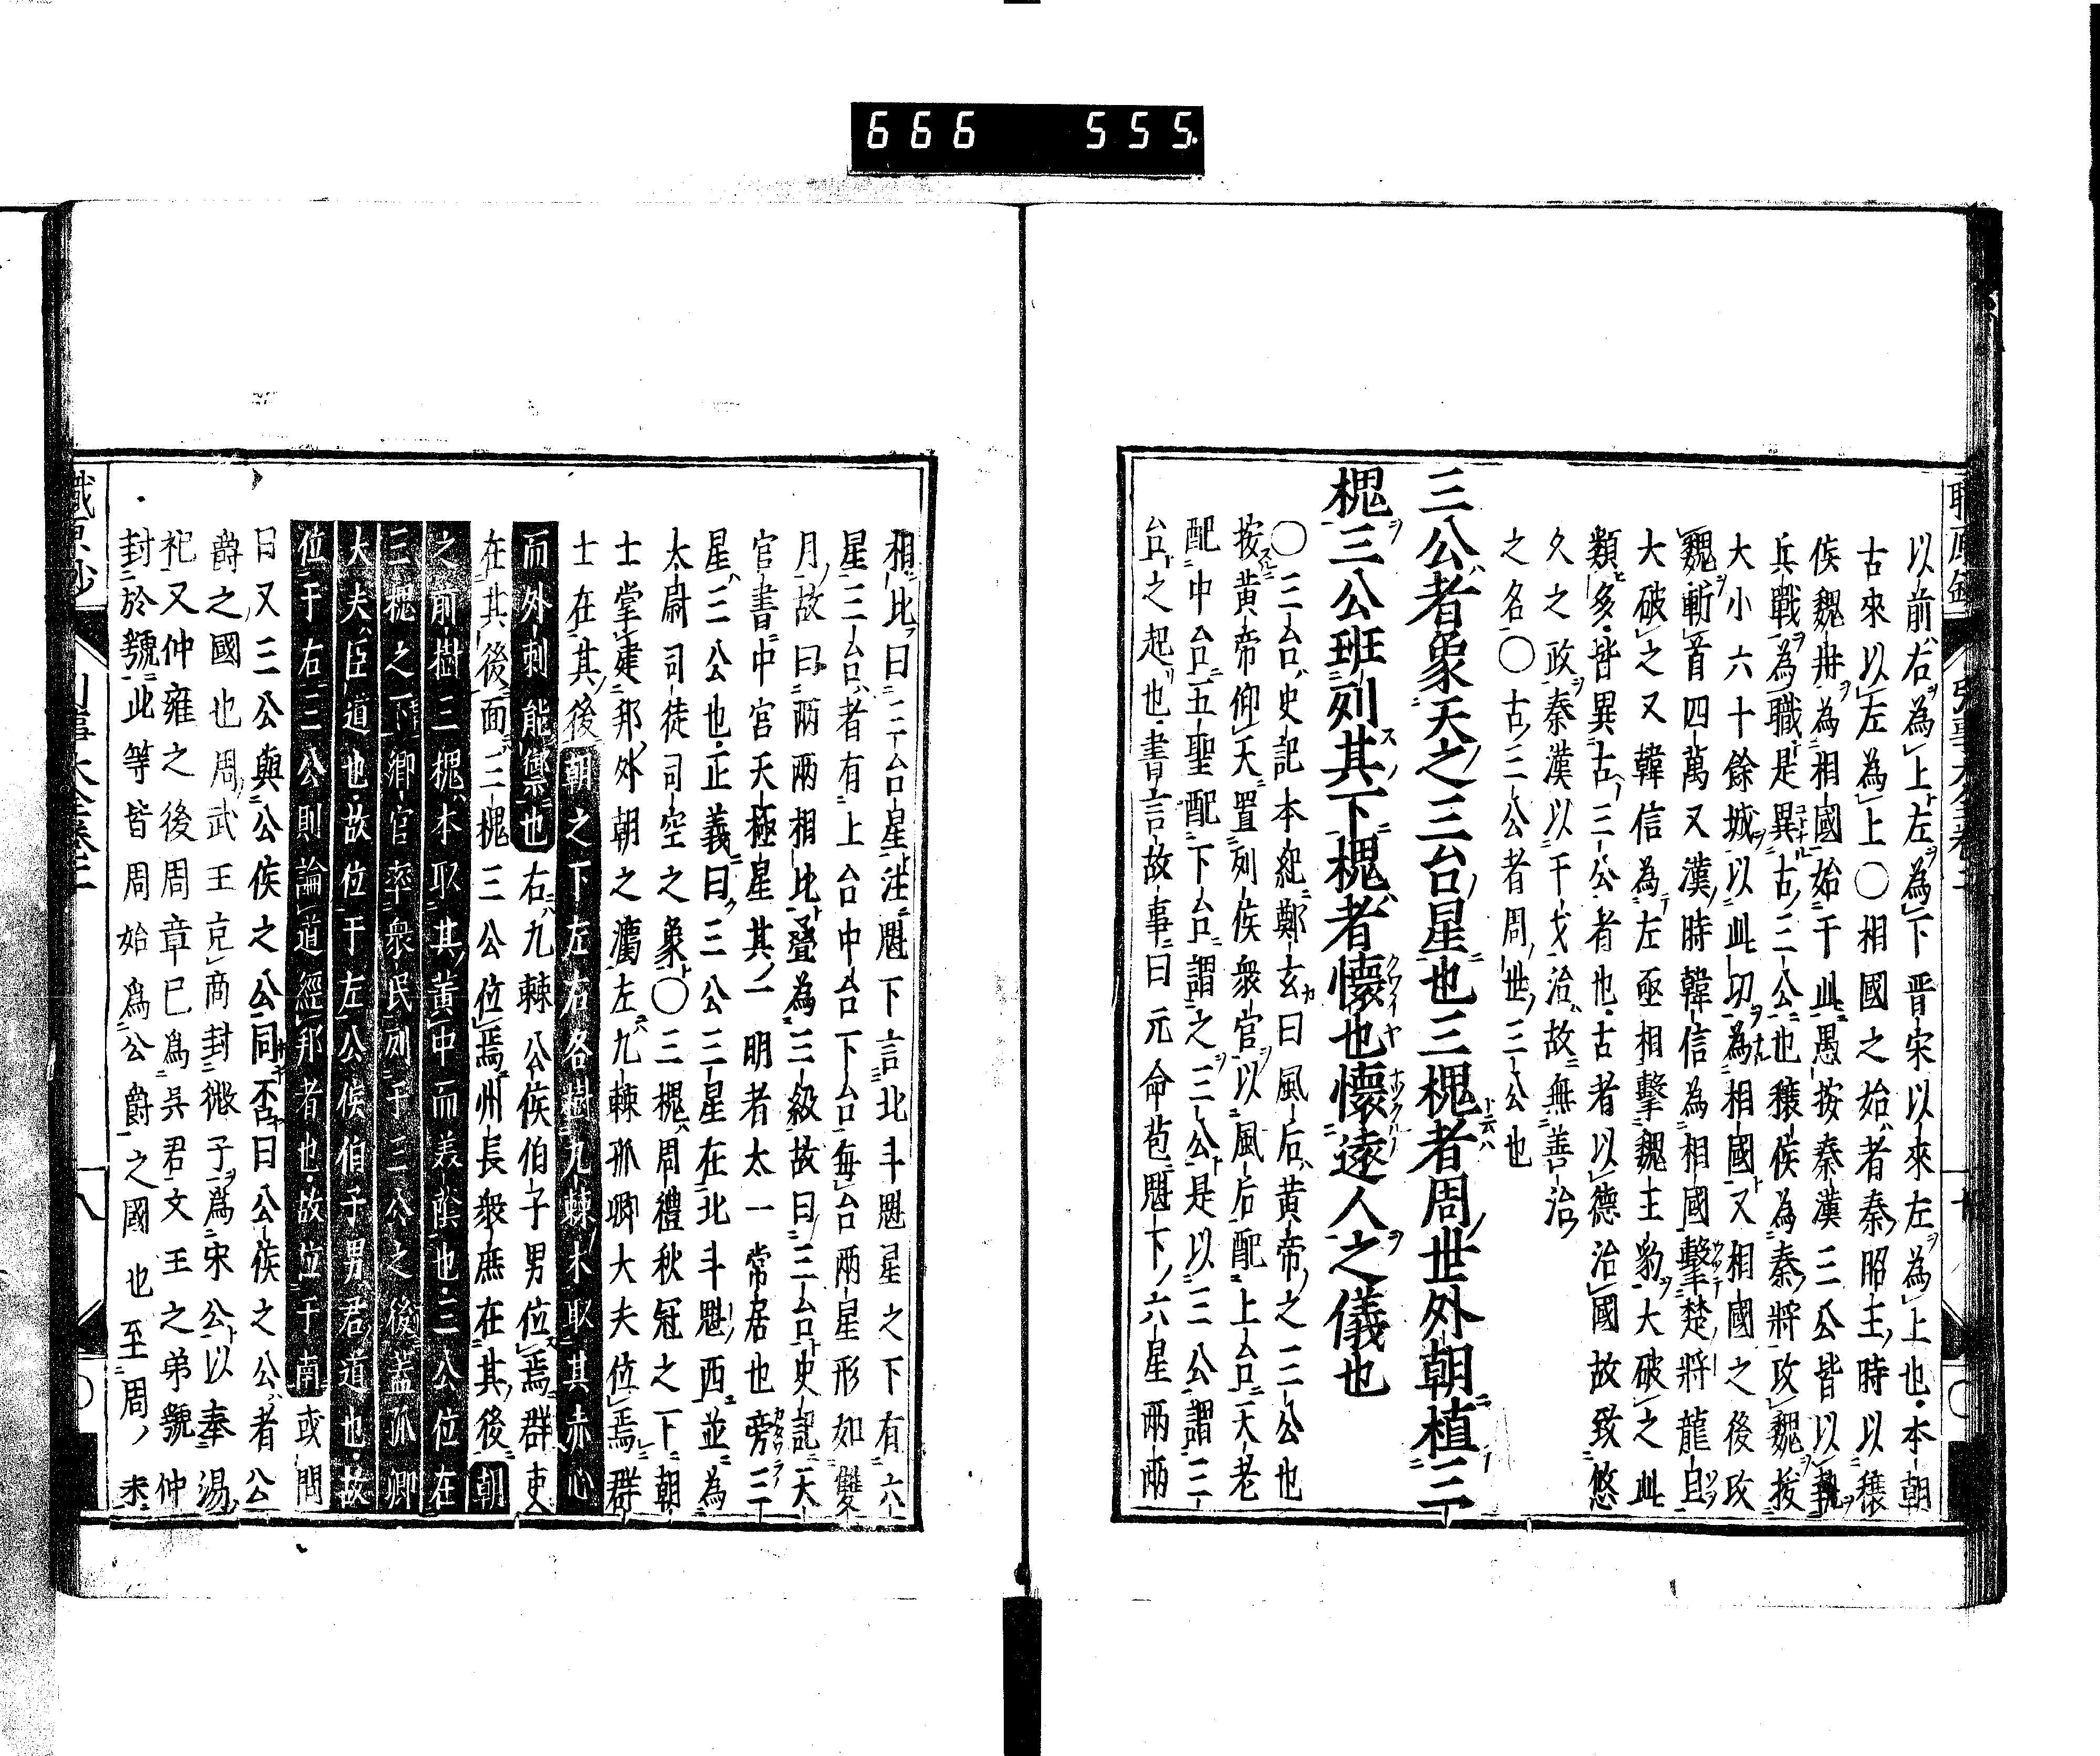 666 555
以前右為上左為下晋宋以來左為上也本朝
古來以左為上〇相國之始者秦昭王時以穰
侯魏冉為相國始于此愚按秦漢三公皆以執
兵戰為職是異古三公也穰侯為秦將攻魏拔
大小六十餘城以此切為相國又相國之後攻
魏斬首四萬又漢時韓信為相國擊楚將龍且
大破之又韓信為左丞相擊魏主豹大破之此
類多皆異古三公者也古者以德治國故致悠
久之政秦漢以干戈治故無善治
之名〇古三公者周世三公也
三公者象天之三台星也三槐者周世外朝植三
槐三公班列其下槐者懷也懷遠人之儀也
〇三台史記本紀鄭玄曰風后黃帝之三公也
按黃帝仰天置列侯衆官以風后配上台天老
配中台五聖配下台謂之三公是以三公謂三
台之起也書言故事曰元命苞魁下六星兩兩
相比曰三台星注魁下言北斗魁星之下有六
星三台者有上台中台下台每台兩星形如雙
月故曰兩兩相比疊為三級故曰三台史記天
官書中官天極星其一明者太一常居也旁三
星三公也正義曰三公三星在北斗魁西並為
太尉司徒司空之象〇三槐周禮秋冠之下朝
士掌建邦外朝之灋左九棘孤卿大夫位焉群
士在其後朝之下左右各樹九棘木取其赤心
而外刺能禦也右九棘公侯伯子男位焉群吏
在其後面三槐三公位焉州長衆庶在其後朝
之前樹三槐本取其黃中而美蔭也三公位在
三槐之下卿官率衆民列于三公之後盖孤卿
大夫臣道也故位于左公侯伯子男君道也故
位于右三公則論道經邦者也故位于南或問
曰又三公與公侯之公同否曰公侯之公者公
爵之國也周武王克商封微子為宋公以奉湯
祀又仲雍之後周章已為吳君文王之弟虢仲
封於虢此等皆周始為公爵之國也至周末
八